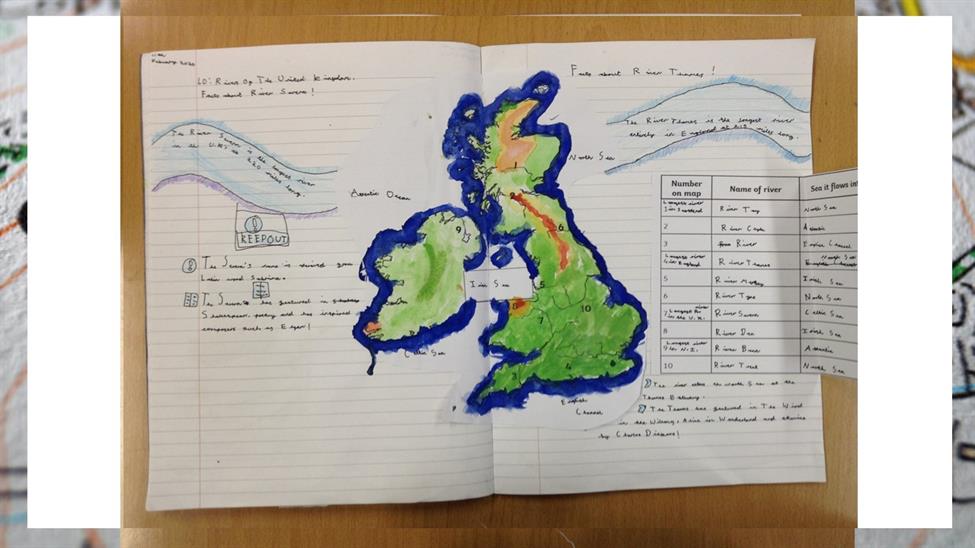 February 2020
LO: Rivers Of The United Kingdom.
Facts about River Severn!
The River Severn is the longest river
in the U.K. at 220 miles long.
KEEP OUT
The Severn's name is derived from
Latin word Sabrina.
The Severn has featured in
Shakespeare, poetry and has inspired
composers such as Elgar!
North Sea
Atlantic Ocean
Irish Sea
Celtic Sea
English
Channel
1
6
9
5
8
7
10
4
Facts about River Thames!
The River Thames is the longest river
entirely in England at 215 miles long.
Number on map Name of river Sea it flows int
Longest river 1 in Scotland River Tay North Sea
2 River Atlantic
3 River Channel
Longest river 4 in England River Thames North Sea
5 River Mersey Irish Sea
6 River Tyne North Sea
7 Longest river in the U.K. River Severn Celtic Sea
8 River Dee Irish Sea
Longest river 9 in N.I. River Bann Atlantic
10 River Trent North Sea
The river enters the North Sea at the
Thames Estuary.
The Thames has featured in The Wind
in the Willows, Alice in Wonderland and stories
by Charles Dickens!